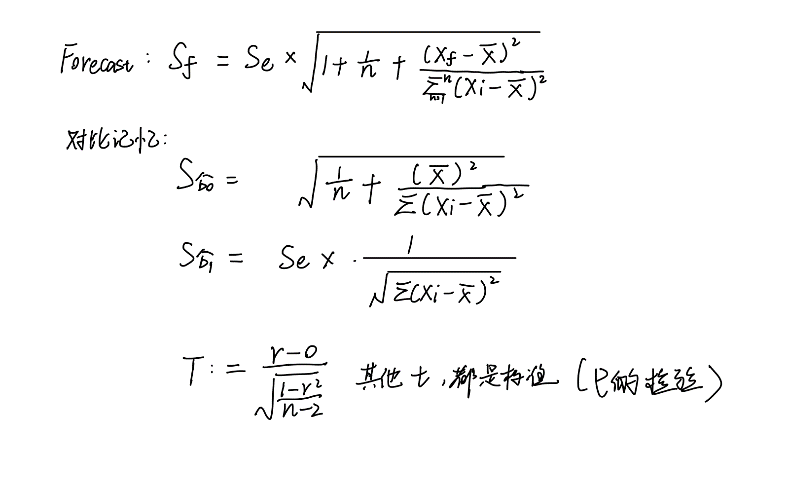 Forecast: Sf = Se × √(1 + 1/n + (Xf - X̄)² / Σⁿₙ₌₁(Xi - X̄)²)
对比记忆:
Sb̂₀ = √(1/n + (X̄)² / Σ(Xi - X̄)²)
Sb̂₁ = Se × · 1 / √Σ(Xi - X̄)²
T: = (r-0) / √((1-r²)/(n-2)) 其他 t, 都是 (ρ的检验)